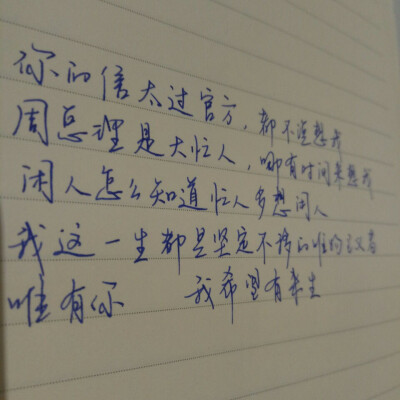 你的信太过官方，都不说想我
周总理是大忙人，哪有时间来想我
闲人怎么知道忙人多想闲人
我这一生都是坚定不移的唯物主义者
唯有你 我希望有来生